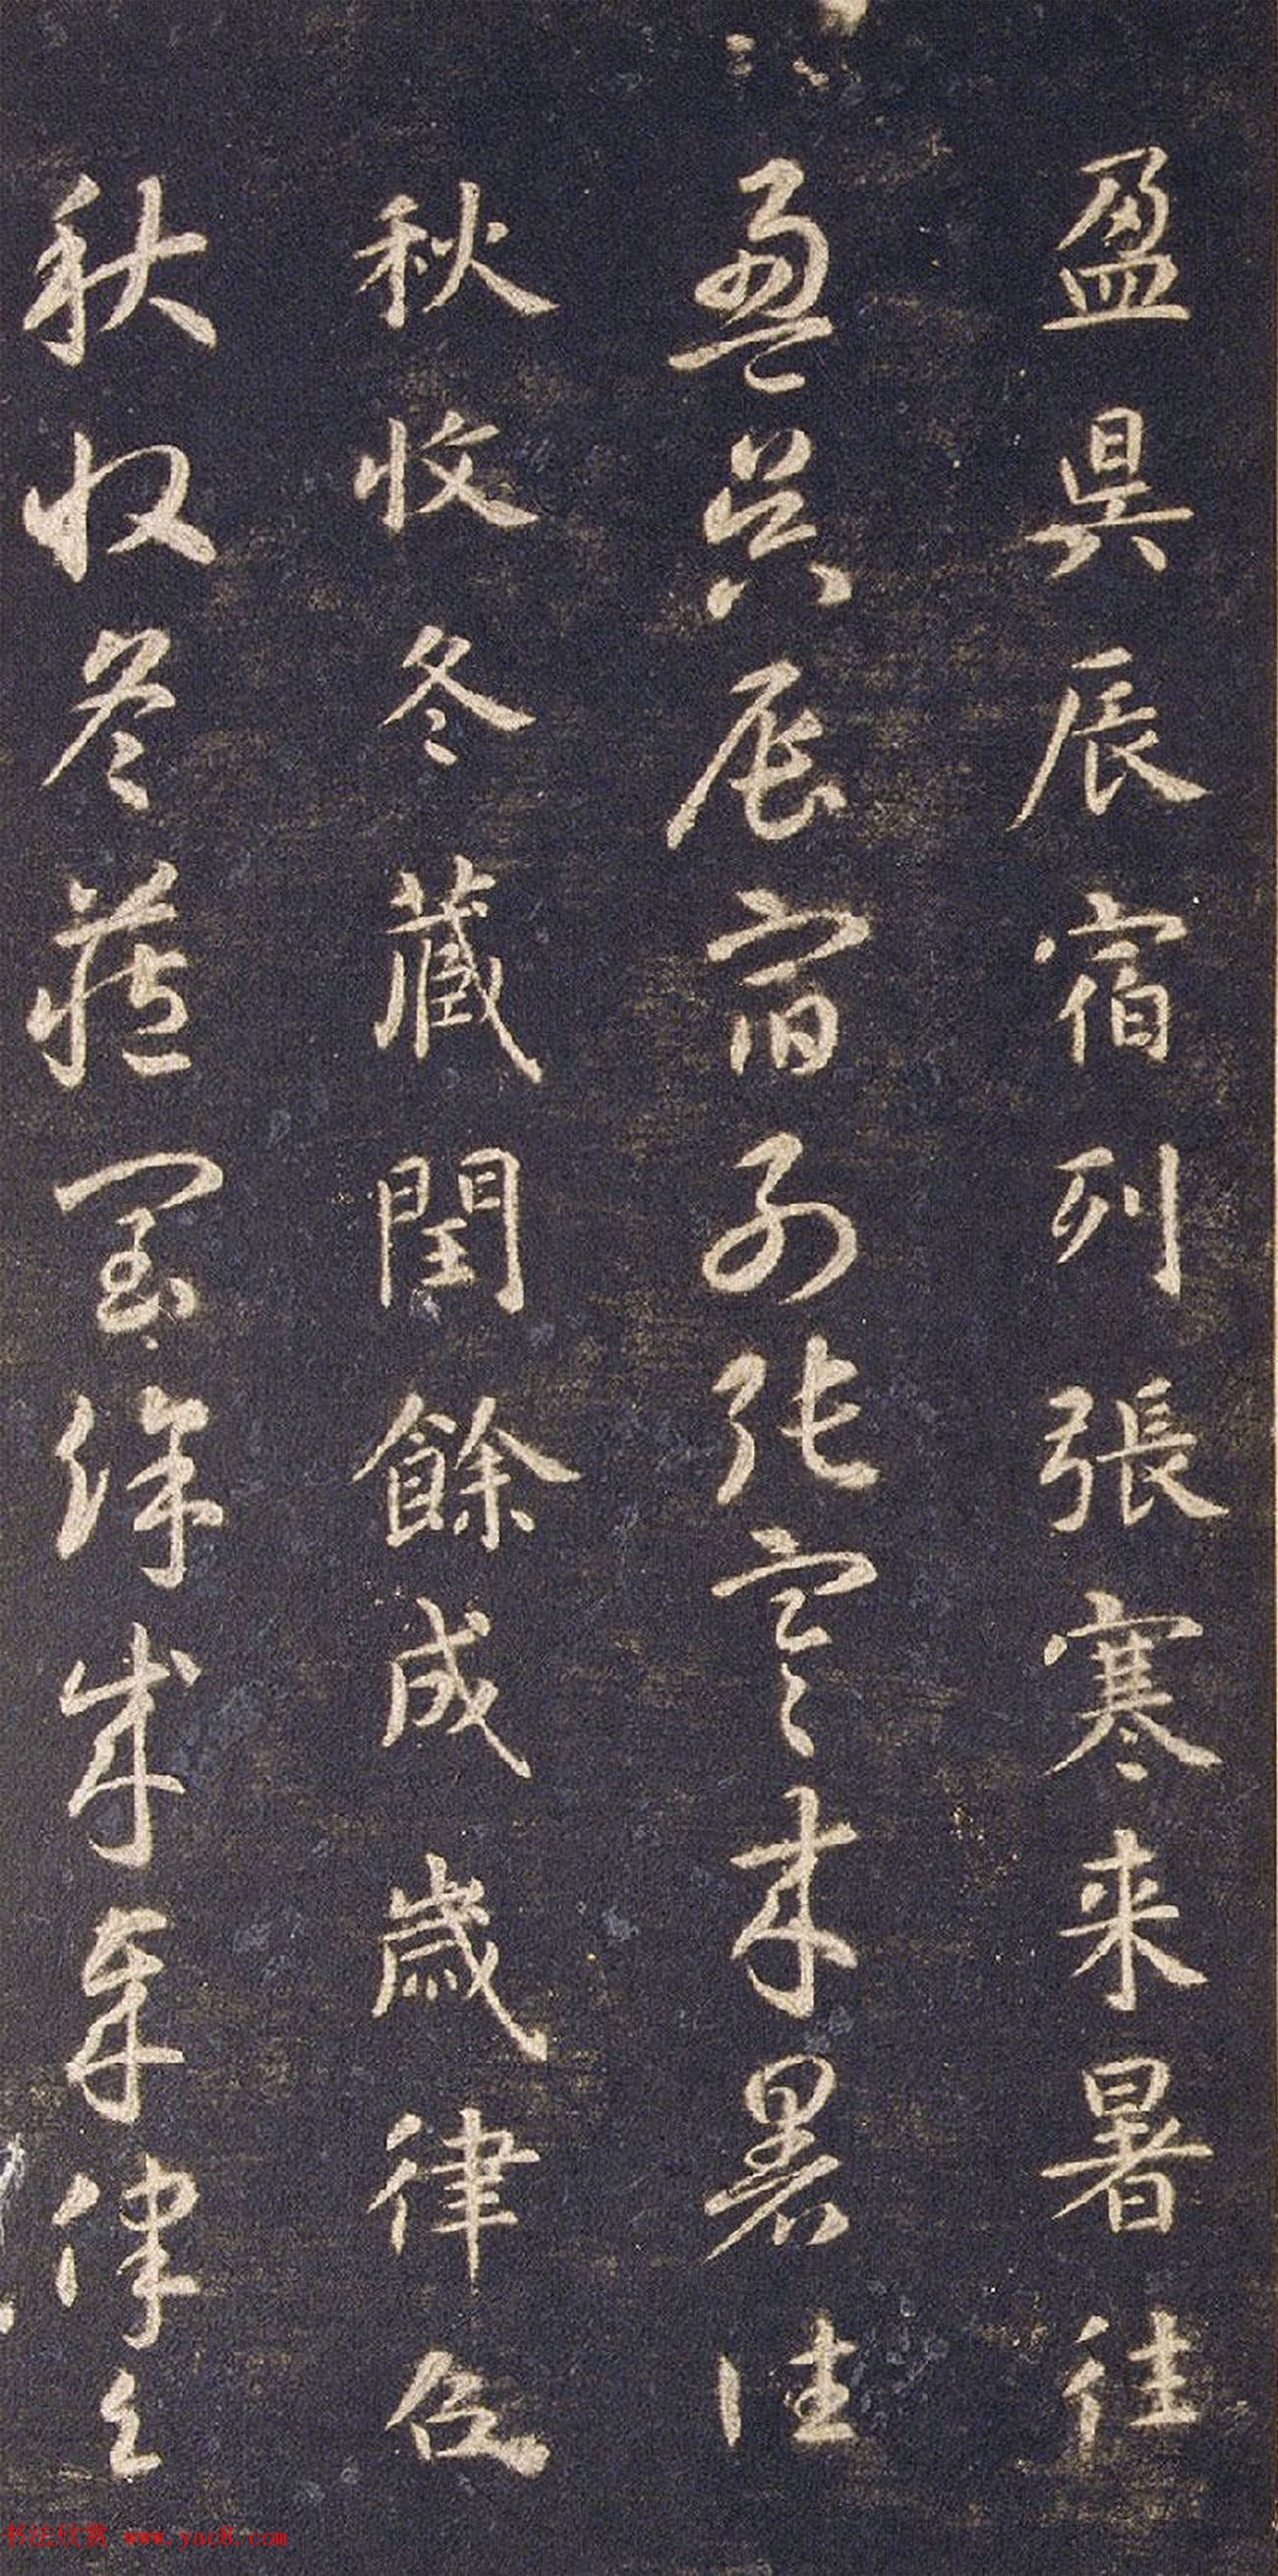 盈昃辰宿列張寒来暑往
盈昃辰宿列张寒来暑往
秋收冬藏閏餘成歲律召
秋收冬藏閏餘成歲律召
书法欣赏 www.yac8.com